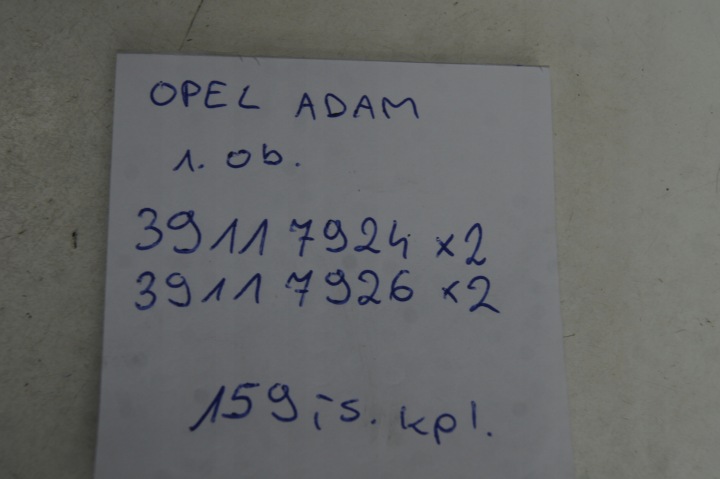 OPEL ADAM
1. ob.
3911 7924 x2
3911 7926 x2
159 is. kpl.